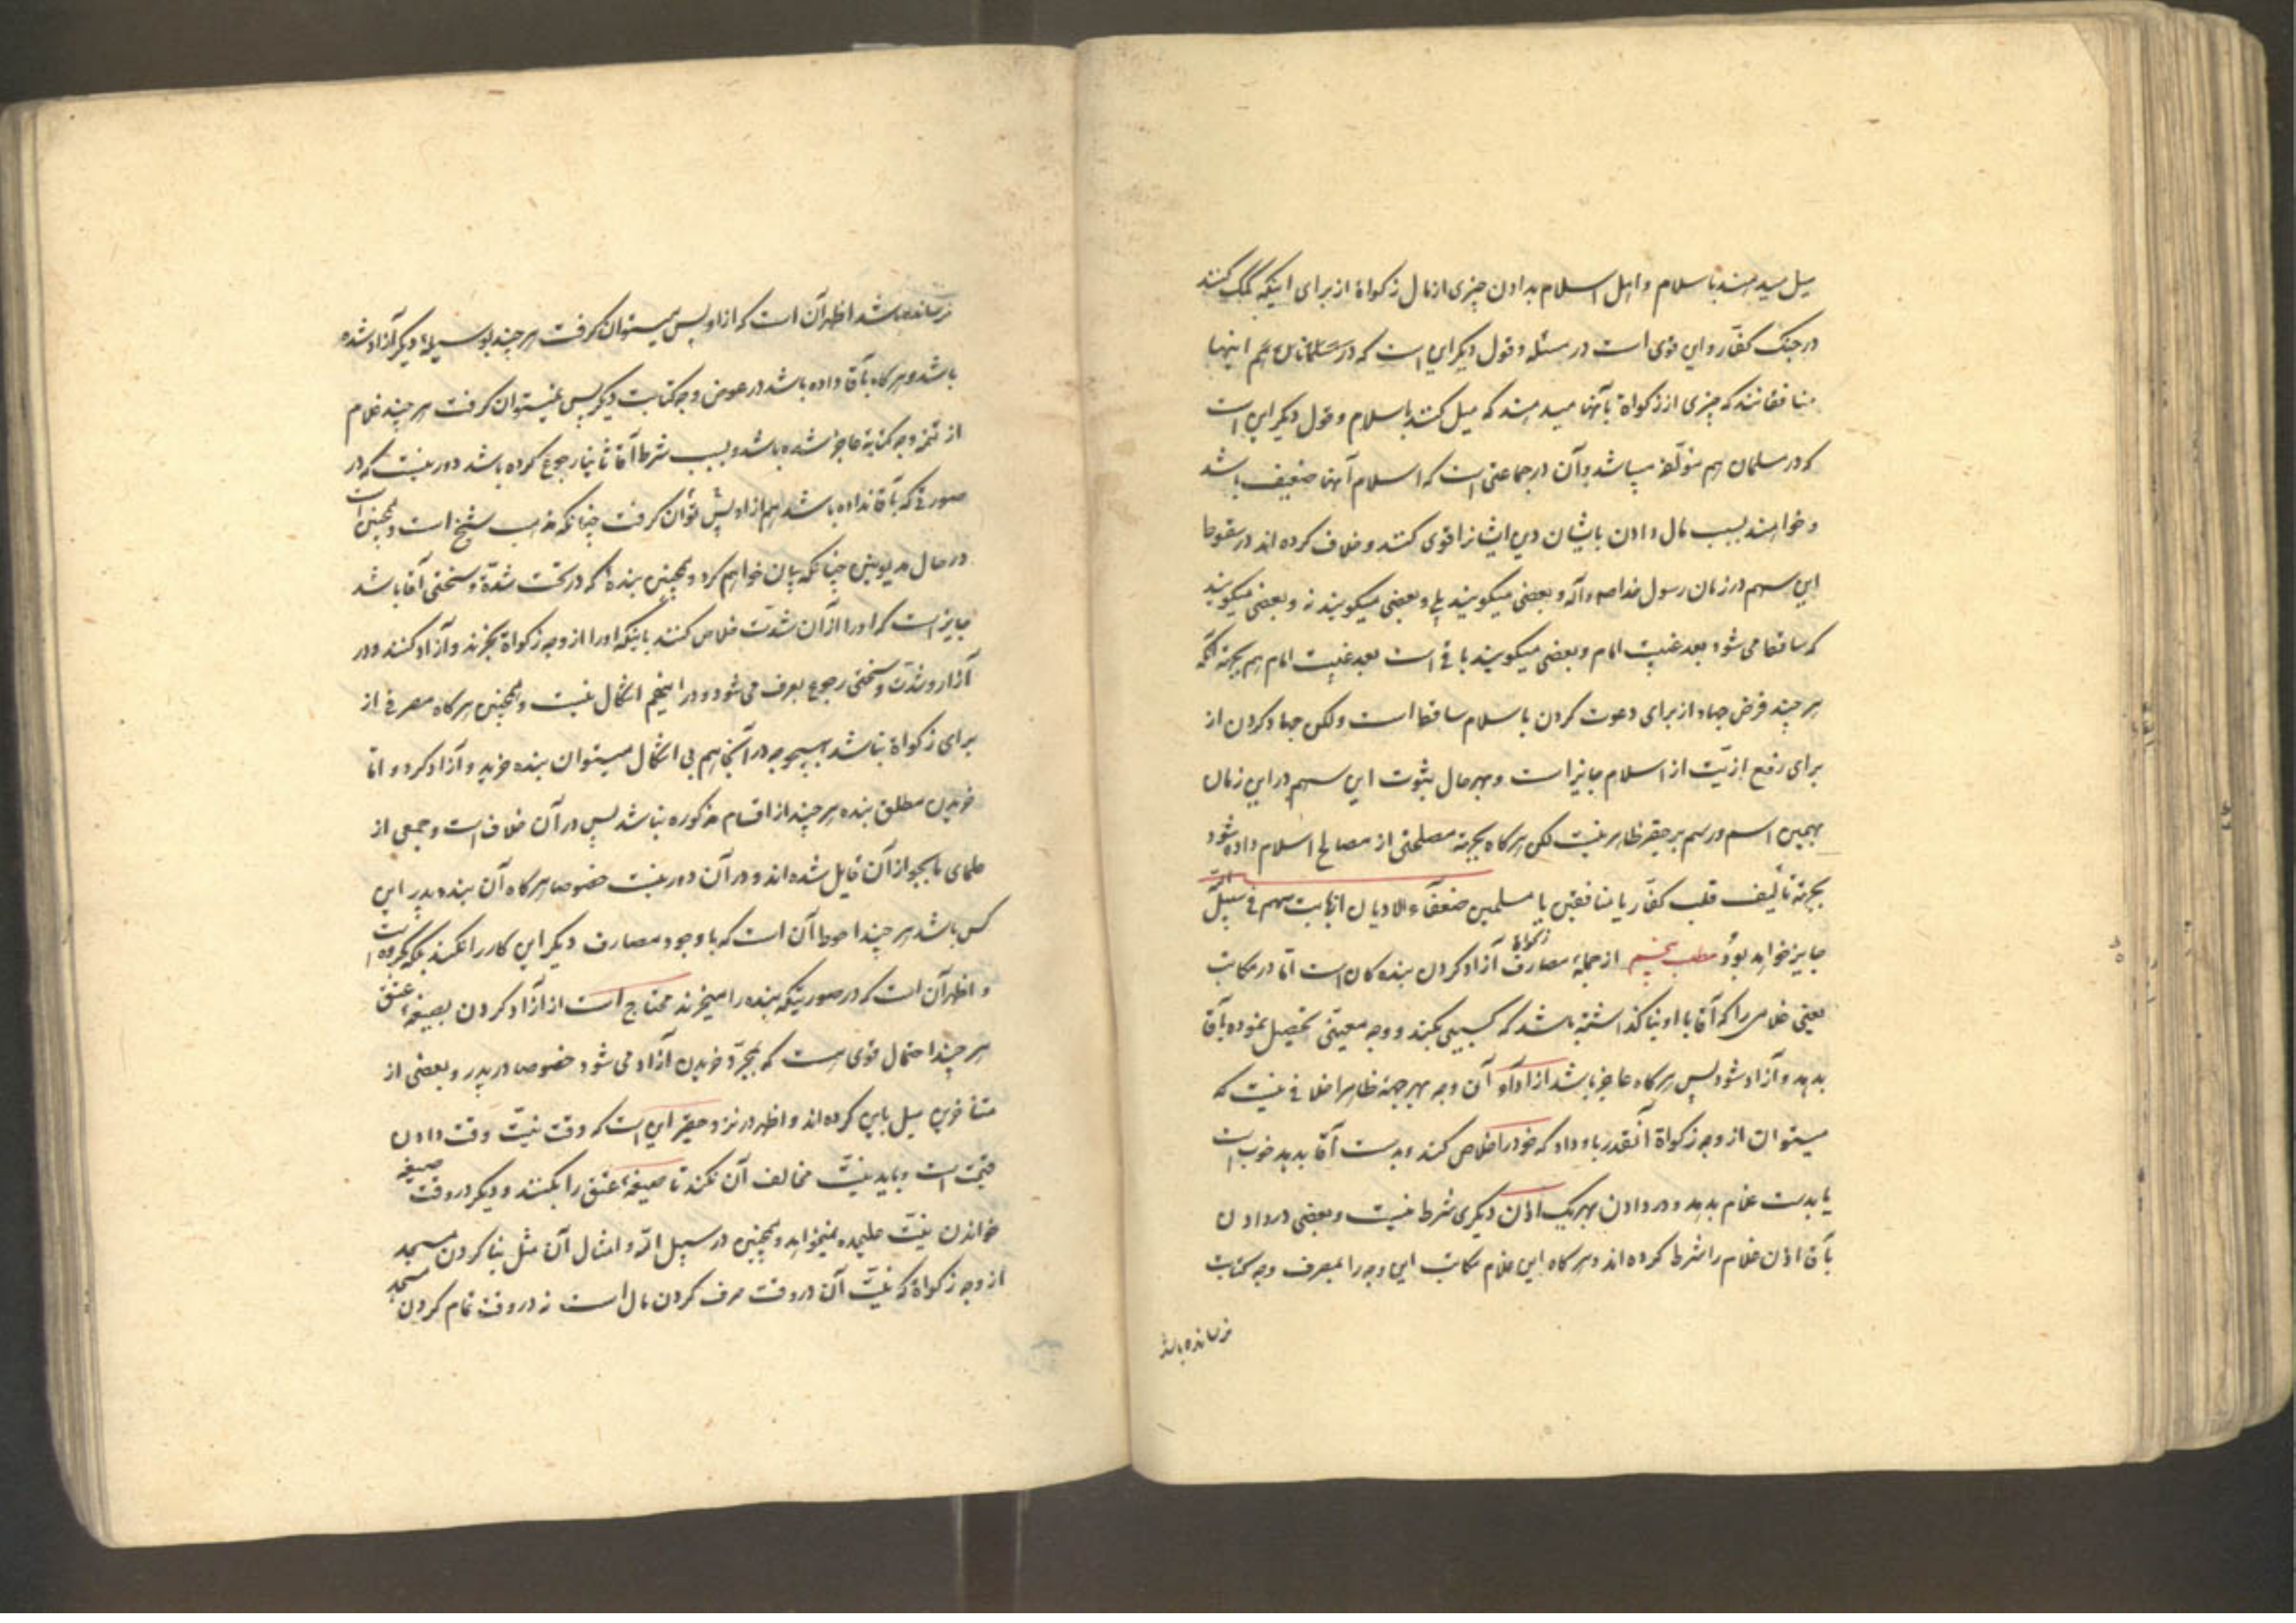 میل میدهند باسلام و اهل اسلام بدادن چیزی از مال زکواة از برای اینکه کمک کنند
در جنک کفّار و این قوی است در مسئله و قول دیکر این است که در مسلمانان هم اینها
منافقانند که چیزی از زکواة بآنها میدهند که میل کنند باسلام و قول دیکر این است
که در مسلمان هم مؤلّفه میباشد و آن در جماعتی است که اسلام آنها ضعیف باشد
و خواهند بسبب مال دادن بایشان دین ایشانرا قوی کنند و خلاف کرده اند در سقوط
این سهم در زمان رسول خدا ص و آله و بعضی میکویند بلی و بعضی میکویند نه و بعضی میکویند
که ساقط می شود بعد غیبت امام و بعضی میکویند باقی است بعد غیبت امام هم بجهة آنکه
هر چند فرض جهاد از برای دعوت کردن باسلام ساقط است ولکن جهاد کردن از
برای دفع اذیّت از اسلام جایز است و بهر حال ثبوت این سهم در این زمان
بهمین اسم و رسم بر حقیر ظاهر نیست لکن هرکاه بجهة مصلحتی از مصالح اسلام داده شود
بجهة تألیف قلب کفّار یا منافقین یا مسلمین ضعفاء الادیان از بابت سهم فی سبیل اللّه
جایز خواهد بود و مطلب پنجم از جملهٔ مصارف زکواة آزاد کردن بنده کان است امّا در مکاتب
یعنی غلامی را که آقا با او بنا کذاشته باشد که کسبی بکند و وجه معیّنی تحصیل نموده بآقا
بدهد و آزاد شود پس هرکاه عاجز باشد از اداء آن وجه بهر جهة ظاهرا خلافی نیست که
میتوان از وجه زکواة آنقدر باو داد که خود را خلاص کند و بدست آقا بدهد خوب است
یا بدست غلام بدهد و در دادن بهر یک اذن دیکری شرط نیست و بعضی در دادن
بآقا اذن غلام را شرط کرده اند و هرکاه این غلام مکاتب این وجه را بمصرف وجه کتابت
نرسانده باشد
نرسانده باشد اظهر آن است که از او پس میتوان کرفت هر چند بوسیلهٔ دیکر آزاد شده
باشد و هرکاه بآقا داده باشد در عوض وجه کتابت دیکر پس نمیتوان کرفت هر چند غلام
از تتمهٔ وجه کتابة عاجز شده باشد و بسبب شرط آقا ثانیا رجوع کرده باشد دور نیست که در
صورتی که بآقا نداده باشد هم از او پس توان کرفت چنانکه مذهب شیخ است و همچنین است
در حال مدیونین چنانکه بیان خواهم کرد و همچنین بندهٔ که در تحت شدّة و سختی آقا باشد
جایز است که او را از آن شدّت خلاص کنند باینکه او را از وجه زکواة بخرند و آزاد کنند و در
آزار و شدّت و سختی رجوع بعرف می شود و در اینهم اشکال نیست و همچنین هرکاه مصرفی از
برای زکواة نباشد بهیچوجه در آنجا هم بی اشکال میتوان بنده خرید و آزاد کرد و امّا
خریدن مطلق بنده هر چند از اقسام مذکوره نباشد پس در آن خلاف است و جمعی از
علمای ما بجواز آن قایل شده اند و در آن دور نیست خصوصا هرکاه آن بنده پدر این
کس باشد هر چند احوط آن است که با وجود مصارف دیکر این کار را نکنند بلکه مکروه است
و اظهر آن است که در صورتیکه بنده را میخرند محتاج است از آزاد کردن بصیغهٔ عتق
هر چند احتمال قوی هست که بمجرّد خریدن آزاد می شود خصوصا در پدر و بعضی از
متأخرین میل باین کرده اند و اظهر در نزد حقیر این است که وقت نیّت وقت دادن
قیمت است و باید نیّت مخالف آن نکند تا صیغهٔ عتق را بکنند و دیکر در وقت صیغه
خواندن نیّت علیحده نمیخواهد و همچنین در سبیل اللّه و امثال آن مثل بنا کردن مسجد
از وجه زکواة که نیّت آن در وقت صرف کردن مال است نه در وقت تمام کردن مسجد